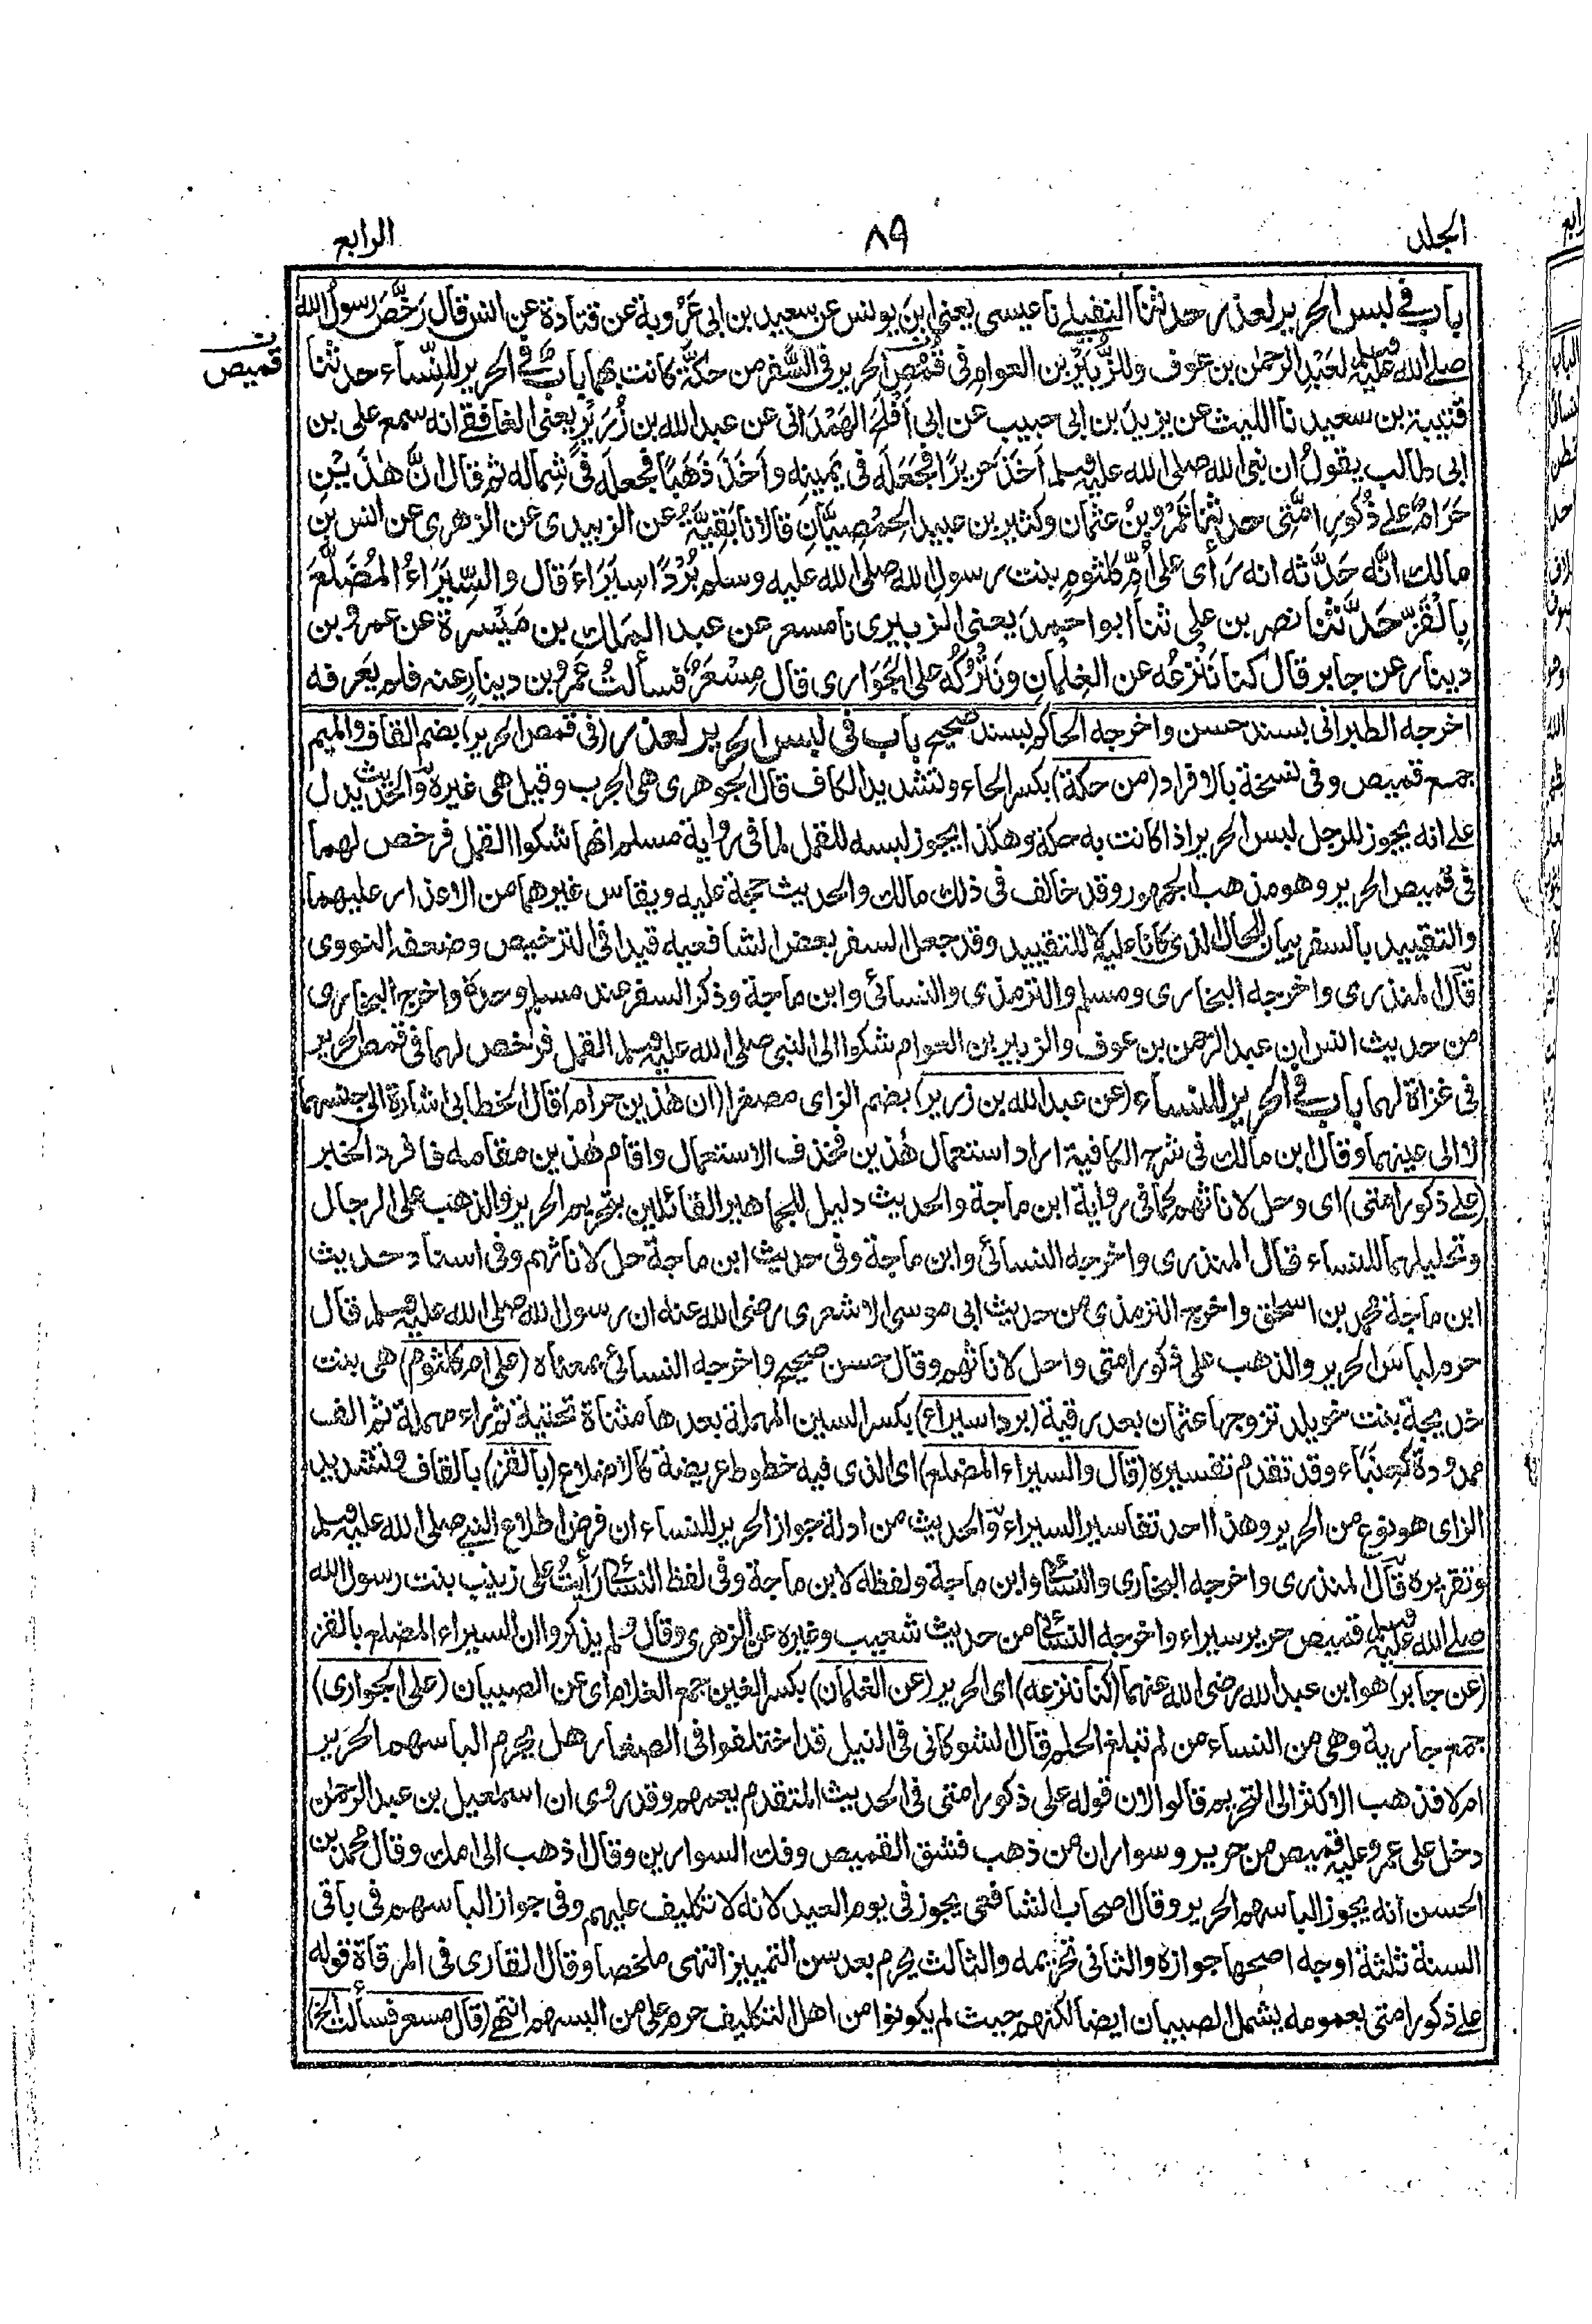 الجلد
٨٩
الرابع
باب في لبس الحرير لعذر حدثنا النفيلي نا عيسى يعني ابن يونس عن سعيد بن ابي عَرُوبة عن قتادة عن انس قال رَخَّصَ رسولُ الله
قميص
صلى الله عليه وسلم لعَبْدِ الرحمٰن بن عوف وللزُّبَيْر بن العوام في قُمُصِ الحرير في السَّفر من حكَّة كانت بهما باب في الحرير للنِّساء حدثنا
قتيبة بن سعيد نا الليث عن يزيد بن ابي حبيب عن ابي أَفْلَحَ الهَمْدَاني عن عبد الله بن زُرَيْرٍ يعني الغافقي انه سمع علي بن
ابي طالب يقول ان نبي الله صلى الله عليه وسلم أَخَذَ حَرِيرًا فجَعَلَه في يمينِه وأَخَذَ ذَهَبًا فجعلَه في شِماله ثم قال انَّ هٰذَيْنِ
حَرَامٌ على ذُكُورِ امَّتي حدثنا عَمْرُو بنُ عثمان وكثير بن عبيد الحمْصِيَّانِ قالا نا بَقِيَّةُ عن الزبيدي عن الزهري عن انس بن
مالك انَّه حَدَّثه انه رَأى على أُمِّ كلثومٍ بنت رسولِ الله صلى الله عليه وسلم بُرْدًا سِيَرَاءَ قال والسِّيَرَاءُ المُضَلَّعُ
بالْقَزِّ حَدَّثنا نصر بن علي ثنا ابو احمدَ يعني الزبيري نا مسعر عن عبد الملك بن مَيْسرة عن عمرو بن
دينار عن جابر قال كنا نَنْزعُه عن الغِلمانِ ونَتْرُكُه على الجَوَاري قال مِسْعَرٌ فسألتُ عَمْرَو بن دينار عنه فلم يَعرفه
اخرجه الطبراني بسند حسن واخرجه الحاكم بسند صحيح باب في لبس الحرير لعذر (في قمص الحرير) بضم القاف والميم
جمع قميص وفي نسخة بالافراد (من حكة) بكسر الحاء وتشديد الكاف قال الجوهري هي الجرب وقيل هي غيره والحديث يدل
على انه يجوز للرجل لبس الحرير اذا كانت به حكة وهكذا يجوز لبسه للقمل لما في رواية مسلم انهما شكوا القمل فرخص لهما
في قميص الحرير وهو مذهب الجمهور وقد خالف في ذلك مالك والحديث حجة عليه ويقاس غيرهما من الاعذار عليهما
والتقييد بالسفر بيان للحال الذي كانا عليه لا للتقييد وقد جعل السفر بعض الشافعيه قيدا في الترخيص وضعفه النووي
قال المنذري واخرجه البخاري ومسلم والترمذي والنسائي وابن ماجة وذكر السفر عند مسلم وحده واخرج البخاري
من حديث انس ان عبد الرحمن بن عوف والزبير بن العوام شكوا الى النبي صلى الله عليه وسلم القمل فرخص لهما في قمص الحرير
في غزاة لهما باب في الحرير للنساء (عن عبد الله بن زرير) بضم الزاي مصغرا (ان هذين حرام) قال الخطابي اشارة الى جنسهما
لا الى عينهما وقال ابن مالك في شرح الكافية اراد استعمال هٰذين فحذف الاستعمال واقام هٰذين مقامه فافرد الخبر
(على ذكور امتي) اي وحل لاناثهم كما في رواية ابن ماجة والحديث دليل للجماهير القائلين بتحريم الحرير والذهب على الرجال
وتحليلهما للنساء قال المنذري واخرجه النسائي وابن ماجة وفي حديث ابن ماجة حل لاناثهم وفي اسناد حديث
ابن ماجة محمد بن اسحٰق واخرج الترمذي من حديث ابي موسى الاشعري رضي الله عنه ان رسول الله صلى الله عليه وسلم قال
حرم لباس الحرير والذهب على ذكور امتي واحل لاناثهم وقال حسن صحيح واخرجه النسائي بمعناه (على ام كلثوم) هي بنت
خديجة بنت خويلد تزوجها عثمان بعد رقية (بردا سيراء) بكسر السين المهملة بعدها مثناة تحتية ثم راء مهملة ثم الف
ممدودة كعِنَباء وقد تقدم تفسيره (قال والسيراء المضلع) اي الذي فيه خطوط عريضة كالاضلاع (بالقز) بالقاف وتشديد
الزاي هو نوع من الحرير وهذا احد تفاسير السيراء والحديث من ادلة جواز الحرير للنساء ان فرض اطلاع النبي صلى الله عليه وسلم
وتقريره قال المنذري واخرجه البخاري والنسائي وابن ماجة ولفظه لابن ماجة وفي لفظ النسائي رَأَيْتُ على زينب بنت رسول الله
صلى الله عليه وسلم قميص حرير سيراء واخرجه النسائي من حديث شعيب وغيره عن الزهري وقال ولم يذكروا ان السيراء المضلع بالقز
(عن جابر) هو ابن عبد الله رضي الله عنهما (كنا ننزعه) اي الحرير (عن الغلمان) بكسر الغين جمع الغلام اي عن الصبيان (على الجواري)
جمع جارية وهي من النساء من لم تبلغ الحلم قال الشوكاني في النيل قد اختلفوا في الصغار هل يحرم الباسهم الحرير
ام لا فذهب الاكثر الى التحريم قالوا لان قوله على ذكور امتي في الحديث المتقدم يعمهم وقد روى ان اسمٰعيل بن عبد الرحمٰن
دخل على عمر وعليه قميص من حرير وسواران من ذهب فشق القميص وفك السوارين وقال اذهب الى امك وقال محمد بن
الحسن انه يجوز الباسهم الحرير وقال اصحاب الشافعي يجوز في يوم العيد لانه لا تكليف عليهم وفي جواز الباسهم في باقي
السنة ثلثة اوجه اصحها جوازه والثاني تحريمه والثالث يحرم بعد سن التمييز انتهى ملخصا وقال القاري في المرقاة قوله
على ذكور امتي بعمومه يشمل الصبيان ايضا لكنهم حيث لم يكونوا من اهل التكليف حرم على من البسهم انتهى (قال مسعر فسألت الخ)